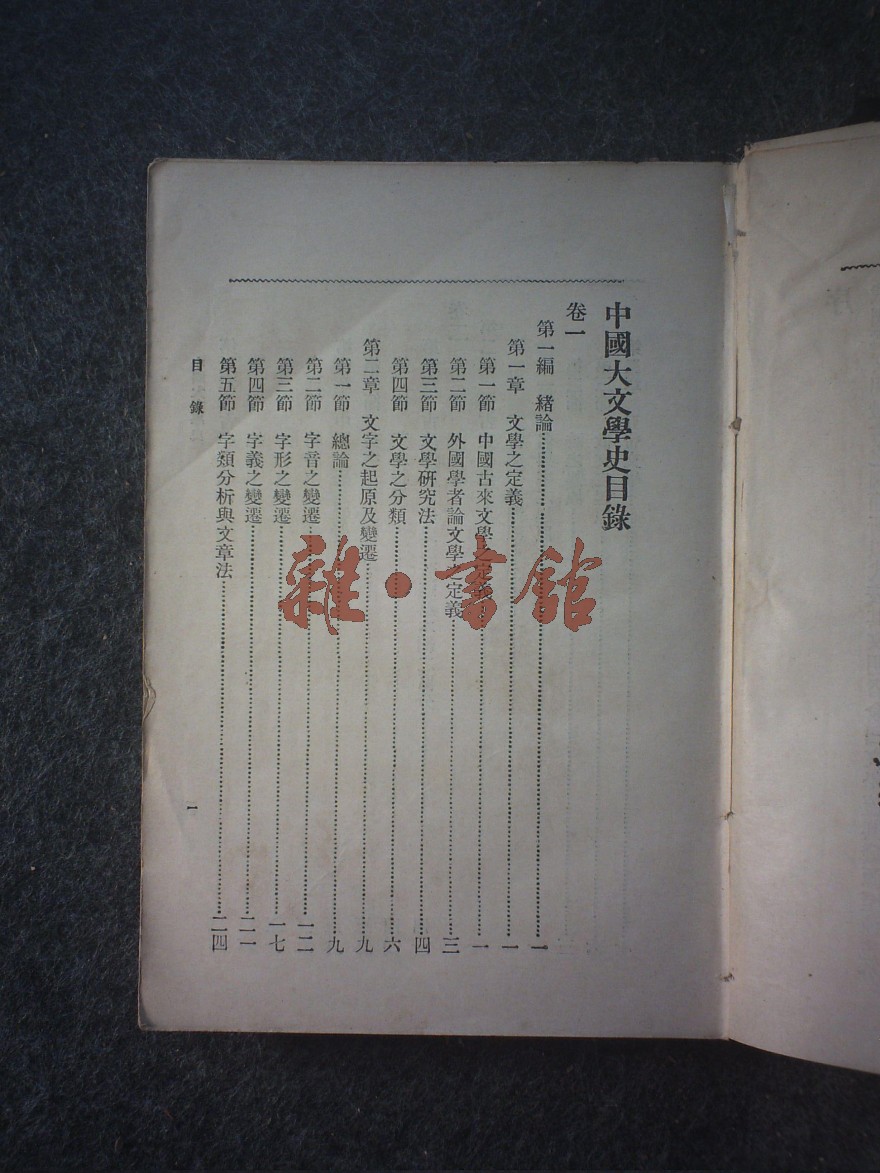 中國大文學史目錄
卷一
第一編　緒論……一
第一章　文學之定義……一
第一節　中國古來文學之定義……一
第二節　外國學者論文學之定義……三
第三節　文學研究法……四
第四節　文學之分類……六
第二章　文字之起原及變遷……九
第一節　總論……九
第二節　字音之變遷……一二
第三節　字形之變遷……一七
第四節　字義之變遷……二一
第五節　字類分析與文章法……二四
目錄
一
雜·書館